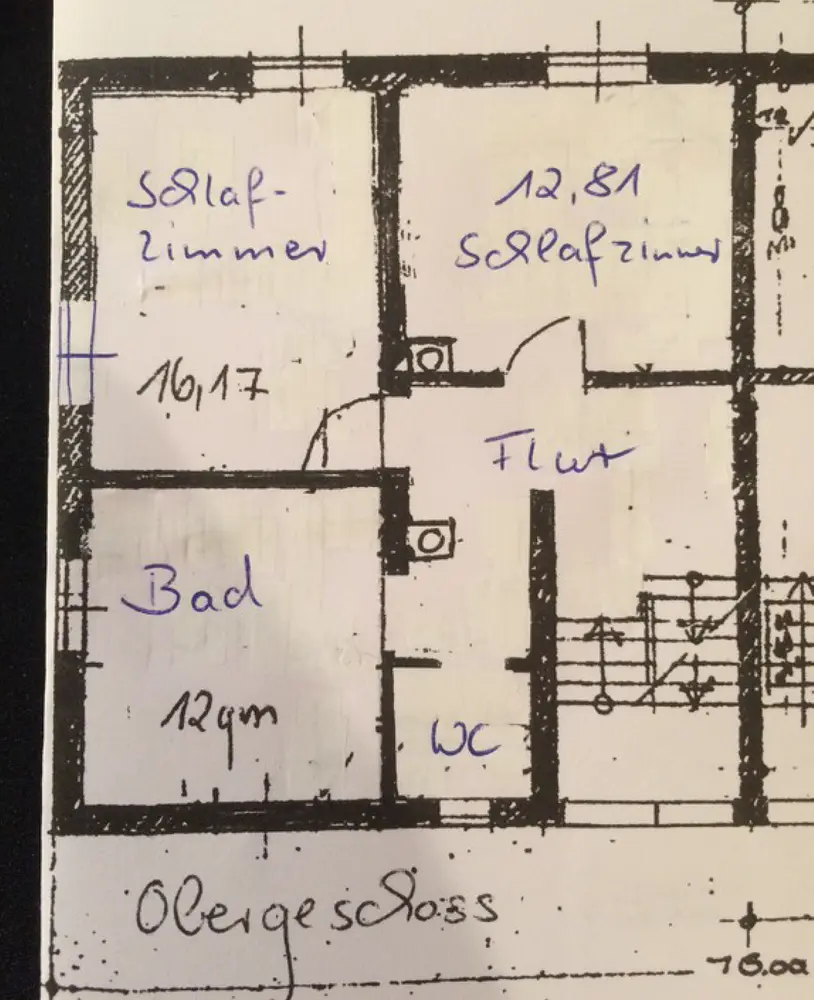 Schlaf-
zimmer
16,17
12,81
Schlafzimmer
Flur
Bad
12qm
WC
Obergeschoss